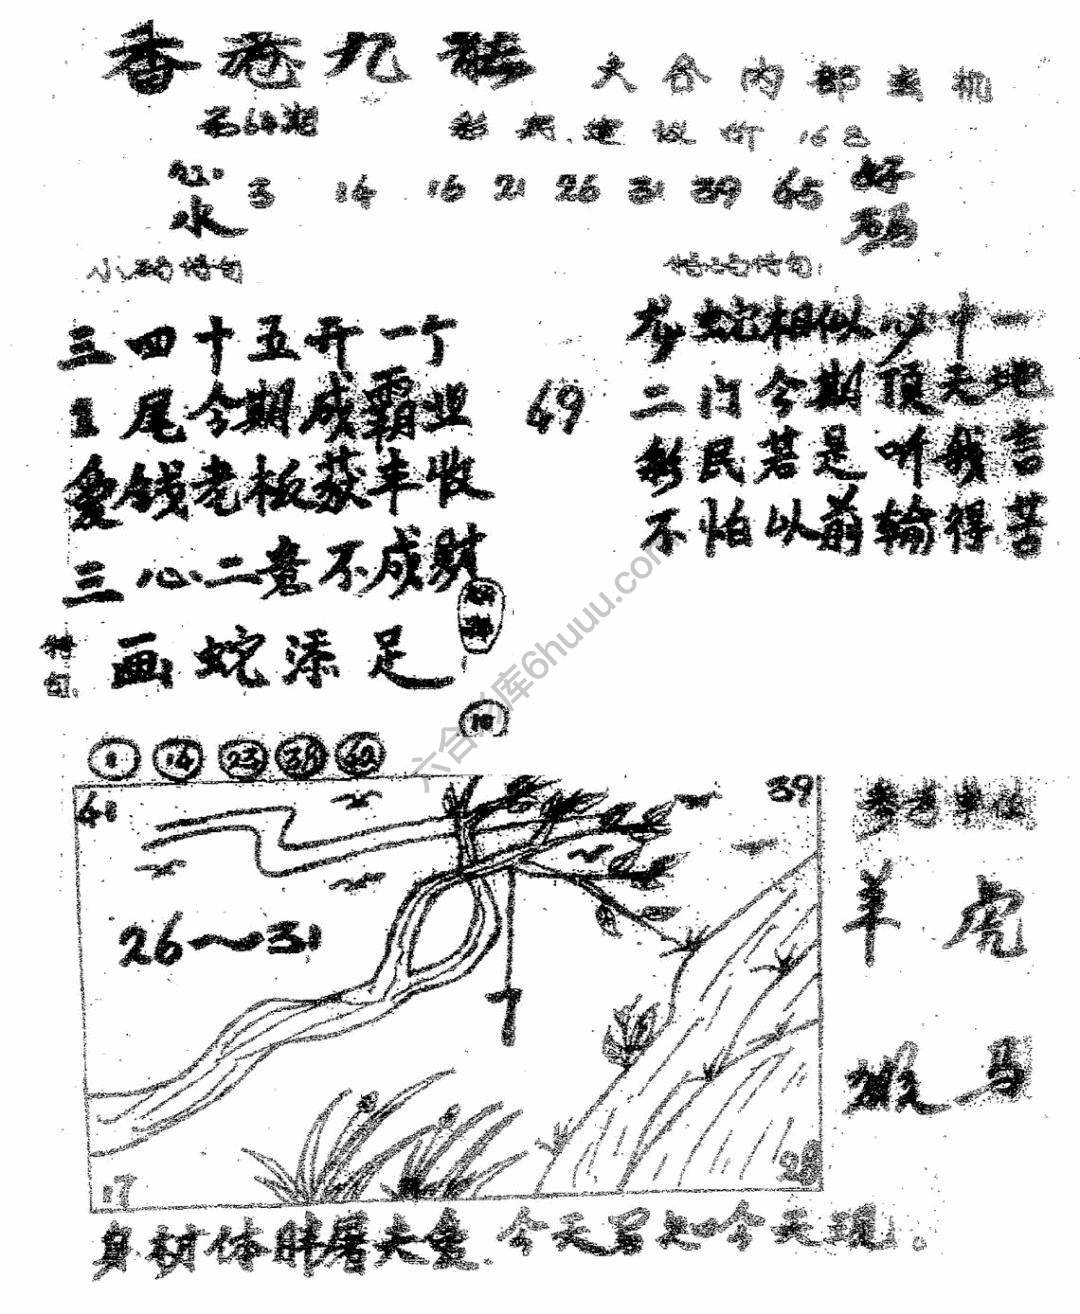 香港九龙 六合内部玄机
第64期 彩民建议价16元
心水 3 14 16 21 26 31 39 45 好码
小码诗句
特码诗句
三四十五开一个
1尾今期成霸业
爱钱老板获丰收
三心二意不成财
49
龙蛇相似必中一
二门今期顶天地
彩民若是听我言
不怕以前输得苦
特句 画蛇添足
10
1 14 23 38 42
41 39
26～31
7
17 28
参考单双
羊 虎
猴 马
身材体胖屠夫鱼.今天另知今天现。
六合彩库6huuu.com